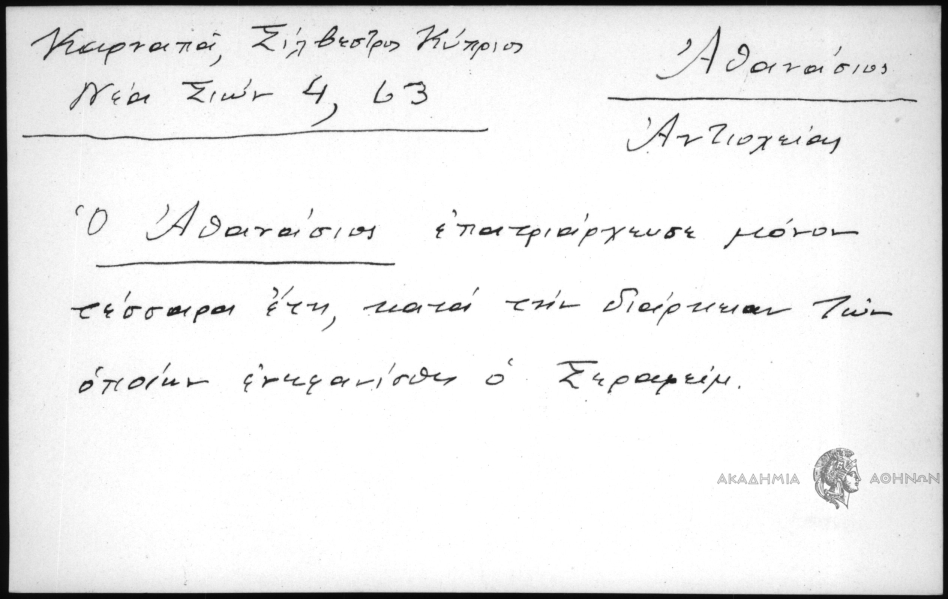 Καρναπᾶ, Σίλβεστρος Κύπριος
Νέα Σιών 4, 63
Ἀθανάσιος
Ἀντιοχείας
Ὁ Ἀθανάσιος ἐπατριάρχευσε μόνον
τέσσαρα ἔτη, κατά τήν διάρκειαν τῶν
ὁποίων ἐνεφανίσθη ὁ Σεραφείμ.
ΑΚΑΔΗΜΙΑ ΑΘΗΝΩΝ